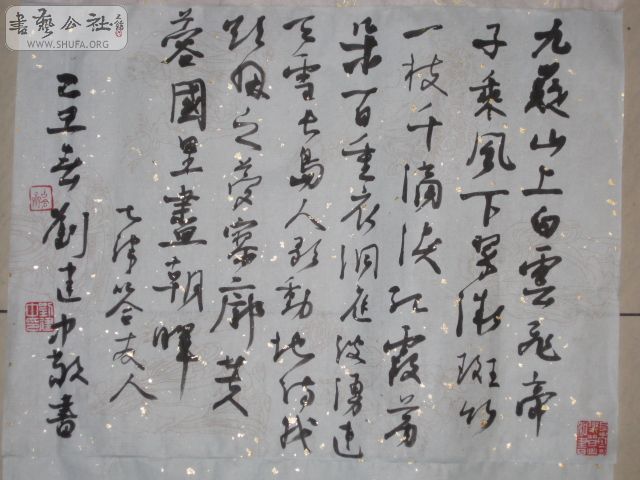 書藝公社
WWW.SHUFA.ORG
九嶷山上白雲飛帝
子乘風下翠微斑竹
一枝千滴淚紅霞萬
朵百重衣洞庭波湧連
天雪長島人歌動地詩我
欲因之夢寥廓芙
蓉國里盡朝暉
七律答友人
己丑春劉建中敬書